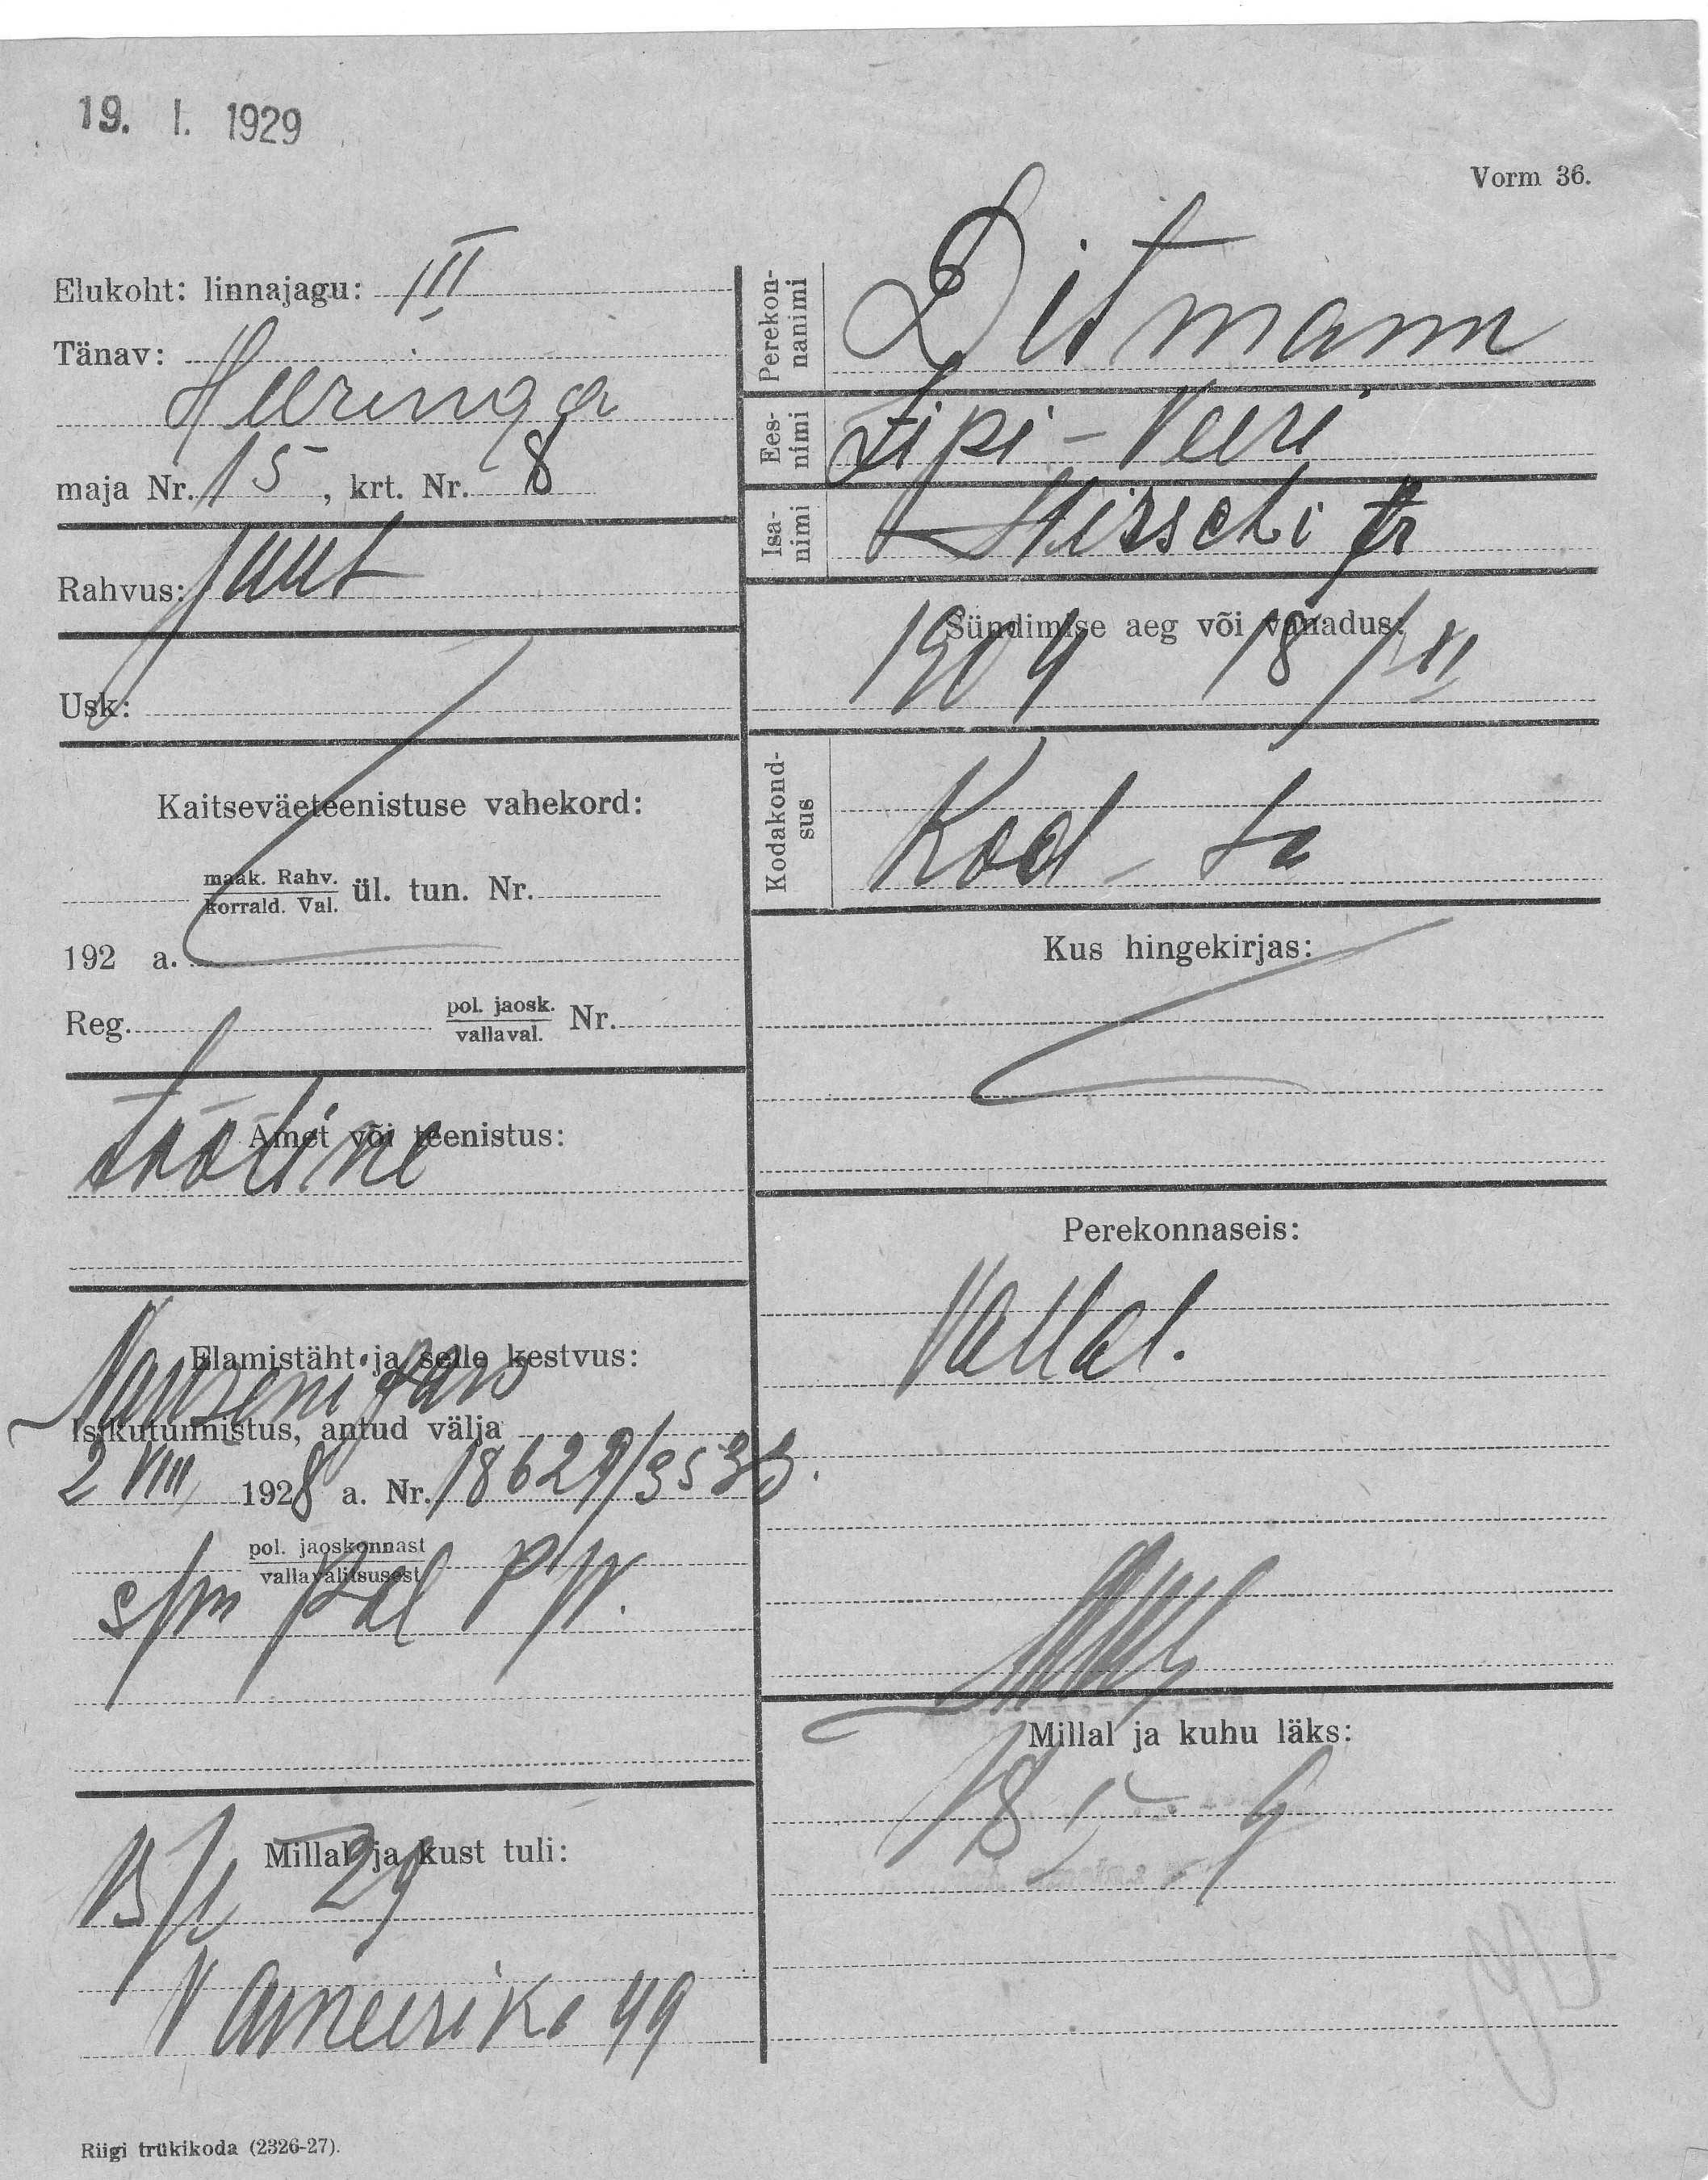 19. I. 1929
Vorm 36.
Elukoht: linnajagu: III
Tänav:
Heeringa
maja Nr. 15, krt. Nr. 8
Rahvus: juut
Usk:
Kaitseväeteenistuse vahekord:
maak. Rahv.
korrald. Val. ül. tun. Nr.
192 a.
Reg. pol. jaosk.
vallaval. Nr.
Amet või teenistus:
tööline
Elamistäht ja selle kestvus:
Nanseni pass
Isikutunnistus, antud välja
2 VIII 1928 a. Nr. 18629/3533.
pol. jaoskonnast
vallavalitsusest
s/m Pol P.W.
Millal ja kust tuli:
13/I 29
V Ameerika 49
Riigi trükikoda (2326-27).
Perekon-
nanimi
Ditmann
Ees-
nimi
Zipi-Veeri
Isa-
nimi
Hirschi tr
Sündimise aeg või vanadus:
1904 18/VI
Kodakond-
sus
Kod-ta
Kus hingekirjas:
Perekonnaseis:
Vallal.
Millal ja kuhu läks:
18